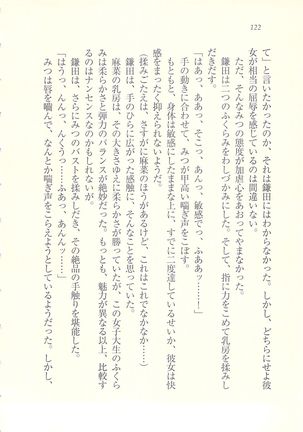 222
て」なのか、それは鎌田にはわからなかった。しかし、どちらにせよ彼
女が相当の屈辱を感じているのは間違いない。
ただ、そんなみつの態度が加虐心をあおってやまなかった。
鎌田は二つのふくらみをわしづかみにした。そして、指に力をこめて乳房を揉みし
だきだす。
「はぁ、ああっ、そこっ、あんっ、敏感でっ、ふああッ……！」
手の動きに合わせて、みつが甲高い喘ぎ声をこぼす。
もともと、身体は敏感にしたままな上に、すでに一度達しているせいか、彼女は快
感をまったく抑えられないようだ。
（揉みごたえは、さすがに麻菜のほうがあるけど、これはこれでなかなか……）
鎌田は、手のひらに広がった感触に、そんなことを思っていた。
麻菜の乳房は、その大きさゆえに柔らかさが勝っていたが、この女子大生のふくら
みは柔らかさと弾力のバランスが絶妙だった。もっとも、魅力が異なる以上、比較す
るのはナンセンスなのかもしれないが。
鎌田は、さらにみつのバストを揉みしだき、その絶品の手触りを堪能した。
「はうっ、んんっ、んくうっ……ふあっ、あんんッ……！」
みつは唇を嚙んで、なんとか喘ぎ声をこらえようとしているようだった。しかし、